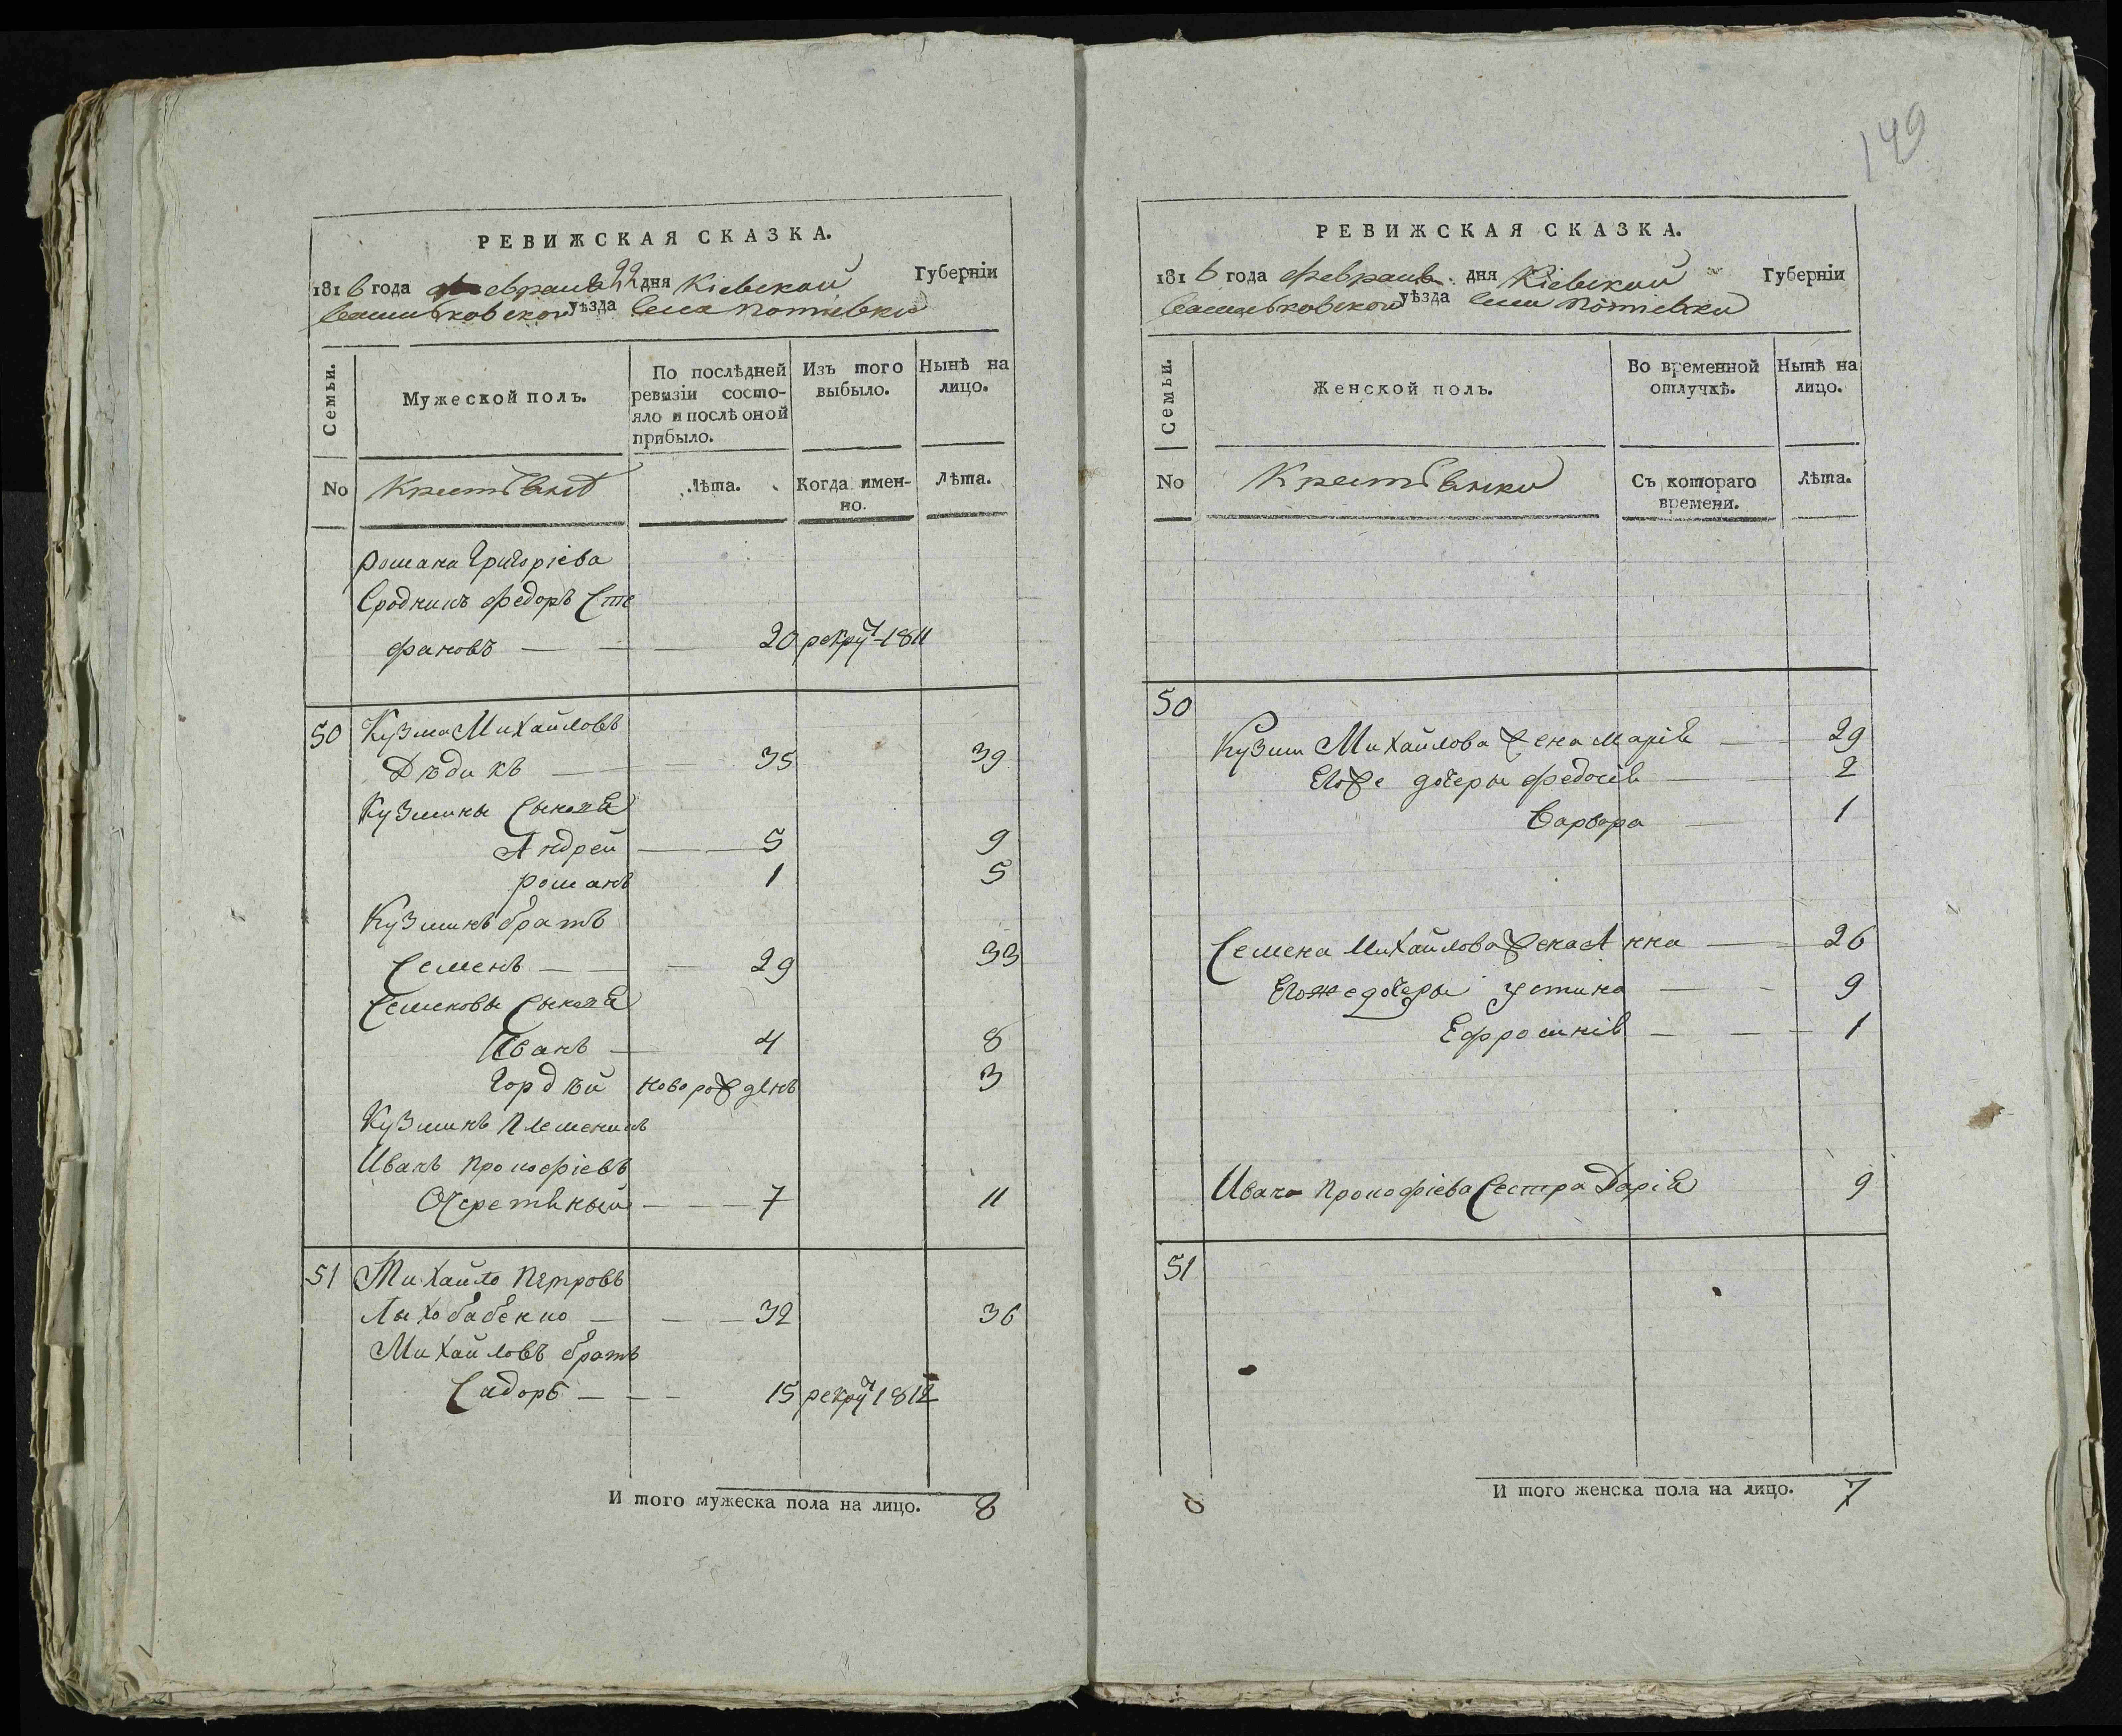 149
РЕВИЖСКАЯ СКАЗКА.
1816 года февраля 22 дня Кіевской Губерніи
Васильковской уѣзда села Потіевки
Семьи.
Мужеской полъ.
По послѣдней ревизіи состо-
яло и послѣ оной
прибыло.
Изъ того
выбыло.
Нынѣ на
лицо.
No
Крестьянъ
Лѣта.
Когда имен-
но.
Лѣта.
Романа Григоріева
Сродникъ Федоръ Сте
фановъ 20 рекру 1811
50 Кузма Михайловъ
Дѣдикъ 35 39
Кузмины Сыновья
Андрей 5 9
Романъ 1 5
Кузминъ братъ
Семенъ 29 33
Семеновы Сыновья
Иванъ 4 8
Гордѣй новорожденъ 3
Кузминъ Племеникъ
Иванъ Прокофіевъ
Очеретяный 7 11
51 Михайло Петровъ
Лыхобабенко 32 36
Михайловъ братъ
Сидоръ 15 рекру 1812
И того мужеска пола на лицо. 8
РЕВИЖСКАЯ СКАЗКА.
1816 года февраля дня Кіевской Губерніи
Васильковской уѣзда села Потіевки
Семьи.
Женской полъ.
Во временной
отлучкѣ.
Нынѣ на
лицо.
No
Крестьянки
Съ котораго
времени.
Лѣта.
50
Кузмы Михайлова жена Марія 29
Егоже дочеры Федосія 2
Варвара 1
Семена Михайлова жена Анна 26
Егоже дочеры Устина 9
Ефросинія 1
Ивана Прокофіева Сестра Дарія 9
51
И того женска пола на лицо. 7